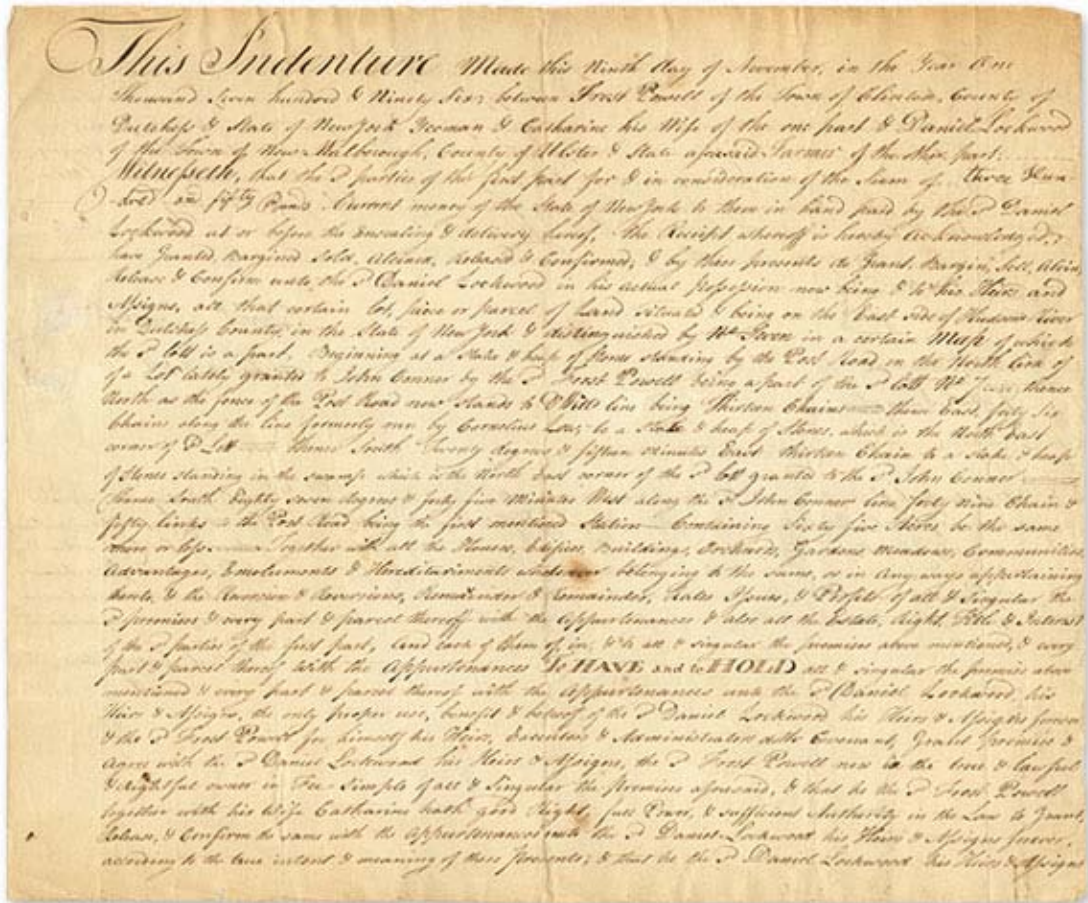 This Indenture Made this Ninth day of November, in the Year One
Thousand Seven hundred & Ninety Six; between Frost Powell of the Town of Clinton, County of
Dutchess & State of New York Yeoman & Catharine his Wife of the one part & Daniel Lockwood
of the Town of New Malborough, County of Ulster & State aforesaid Farmer of the other part.
Witnesseth, that the Sd parties of the first part for & in consideration of the Sum of three Hun-
dred and fifty Pounds Current money of the State of New York to them in hand paid by the Sd Daniel
Lockwood at or before the Ensealing & delivery hereof, the Receipt whereoff is hereby Acknowledged,
have Granted, Bargined Sold, Aliened, Released & Confirmed, & by these presents do Grant, Bargin, Sell, Alien,
Release & Confirm unto the Sd Daniel Lockwood in his actual possession now being & to his Heirs and
Assigns, all that certain lot, piece or parcel of Land situated & being on the East side of Hudsons River
in Dutchess County in the State of New York & distinguished by No. Seven in a certain Map of which
the Sd lott is a part. Beginning at a Stake & heap of Stones standing by the Post Road on the North line of
a Lot lately granted to John Conner by the Sd Frost Powell being a part of the Sd lott No. thence
North as the fence of the Post Road now stands to line being Thirteen Chains thence East, forty Six
Chains along the line formerly run by Cornelius to a Stake & heap of Stones, which is the North East
corner of Sd Lott thence South Twenty degrees & fifteen minutes East thirteen Chain to a Stake & heap
of Stones standing in the swamp which is the North East corner of the Sd lott granted to the Sd John Conner
thence South Eighty seven degrees & forty five Minutes West along the Sd John Conner line forty nine Chain &
fifty links to the Post Road being the first mentioned Station Containing Sixty five Acres be the same
more or less Together with all the Houses, Edifices, Buildings, Orchards, Gardens, Meadows, Communities
Advantages, Emoluments & Hereditaments belonging to the same, or in Any ways appertaining
thereto, & the Revercion & Revercions, Remainder & Remainder, Rents Issues, & Profits of all & Singular the
Sd premises & every part & parcel thereoff with the Appurtenances & also all the Estate, Right, Title & Interest
of the Sd parties of the first part, And each of them of, in, & to all & singular the premises above mentioned, & every
part & parcel thereof with the Appurtenances To HAVE and to HOLD all & singular the premises above
mentioned & every part & parcel thereof with the Appurtenances unto the Sd Daniel Lockwood, his
Heirs & Assigns, the only proper use, benefit & behoof of the Sd Daniel Lockwood his Heirs & Assigns forever
& the Sd Frost Powell for himself his Heirs, Executors & Administrators doth Covenant, Grant promise &
agree with the Sd Daniel Lockwood his Heirs & Assigns, the Sd Frost Powell now is the true & lawful
& rightful owner in Fee Simple of all & Singular the premises aforesaid, & that he the Sd Frost Powell
together with his Wife Catharine hath good Right, full Power, & sufficient Authority in the Law to Grant,
Release, & Confirm the same with the Appurtenances unto the Sd Daniel Lockwood his Heirs & Assigns forever,
according to the true intent & meaning of these Presents; & that he the Sd Daniel Lockwood his Heirs & Assigns